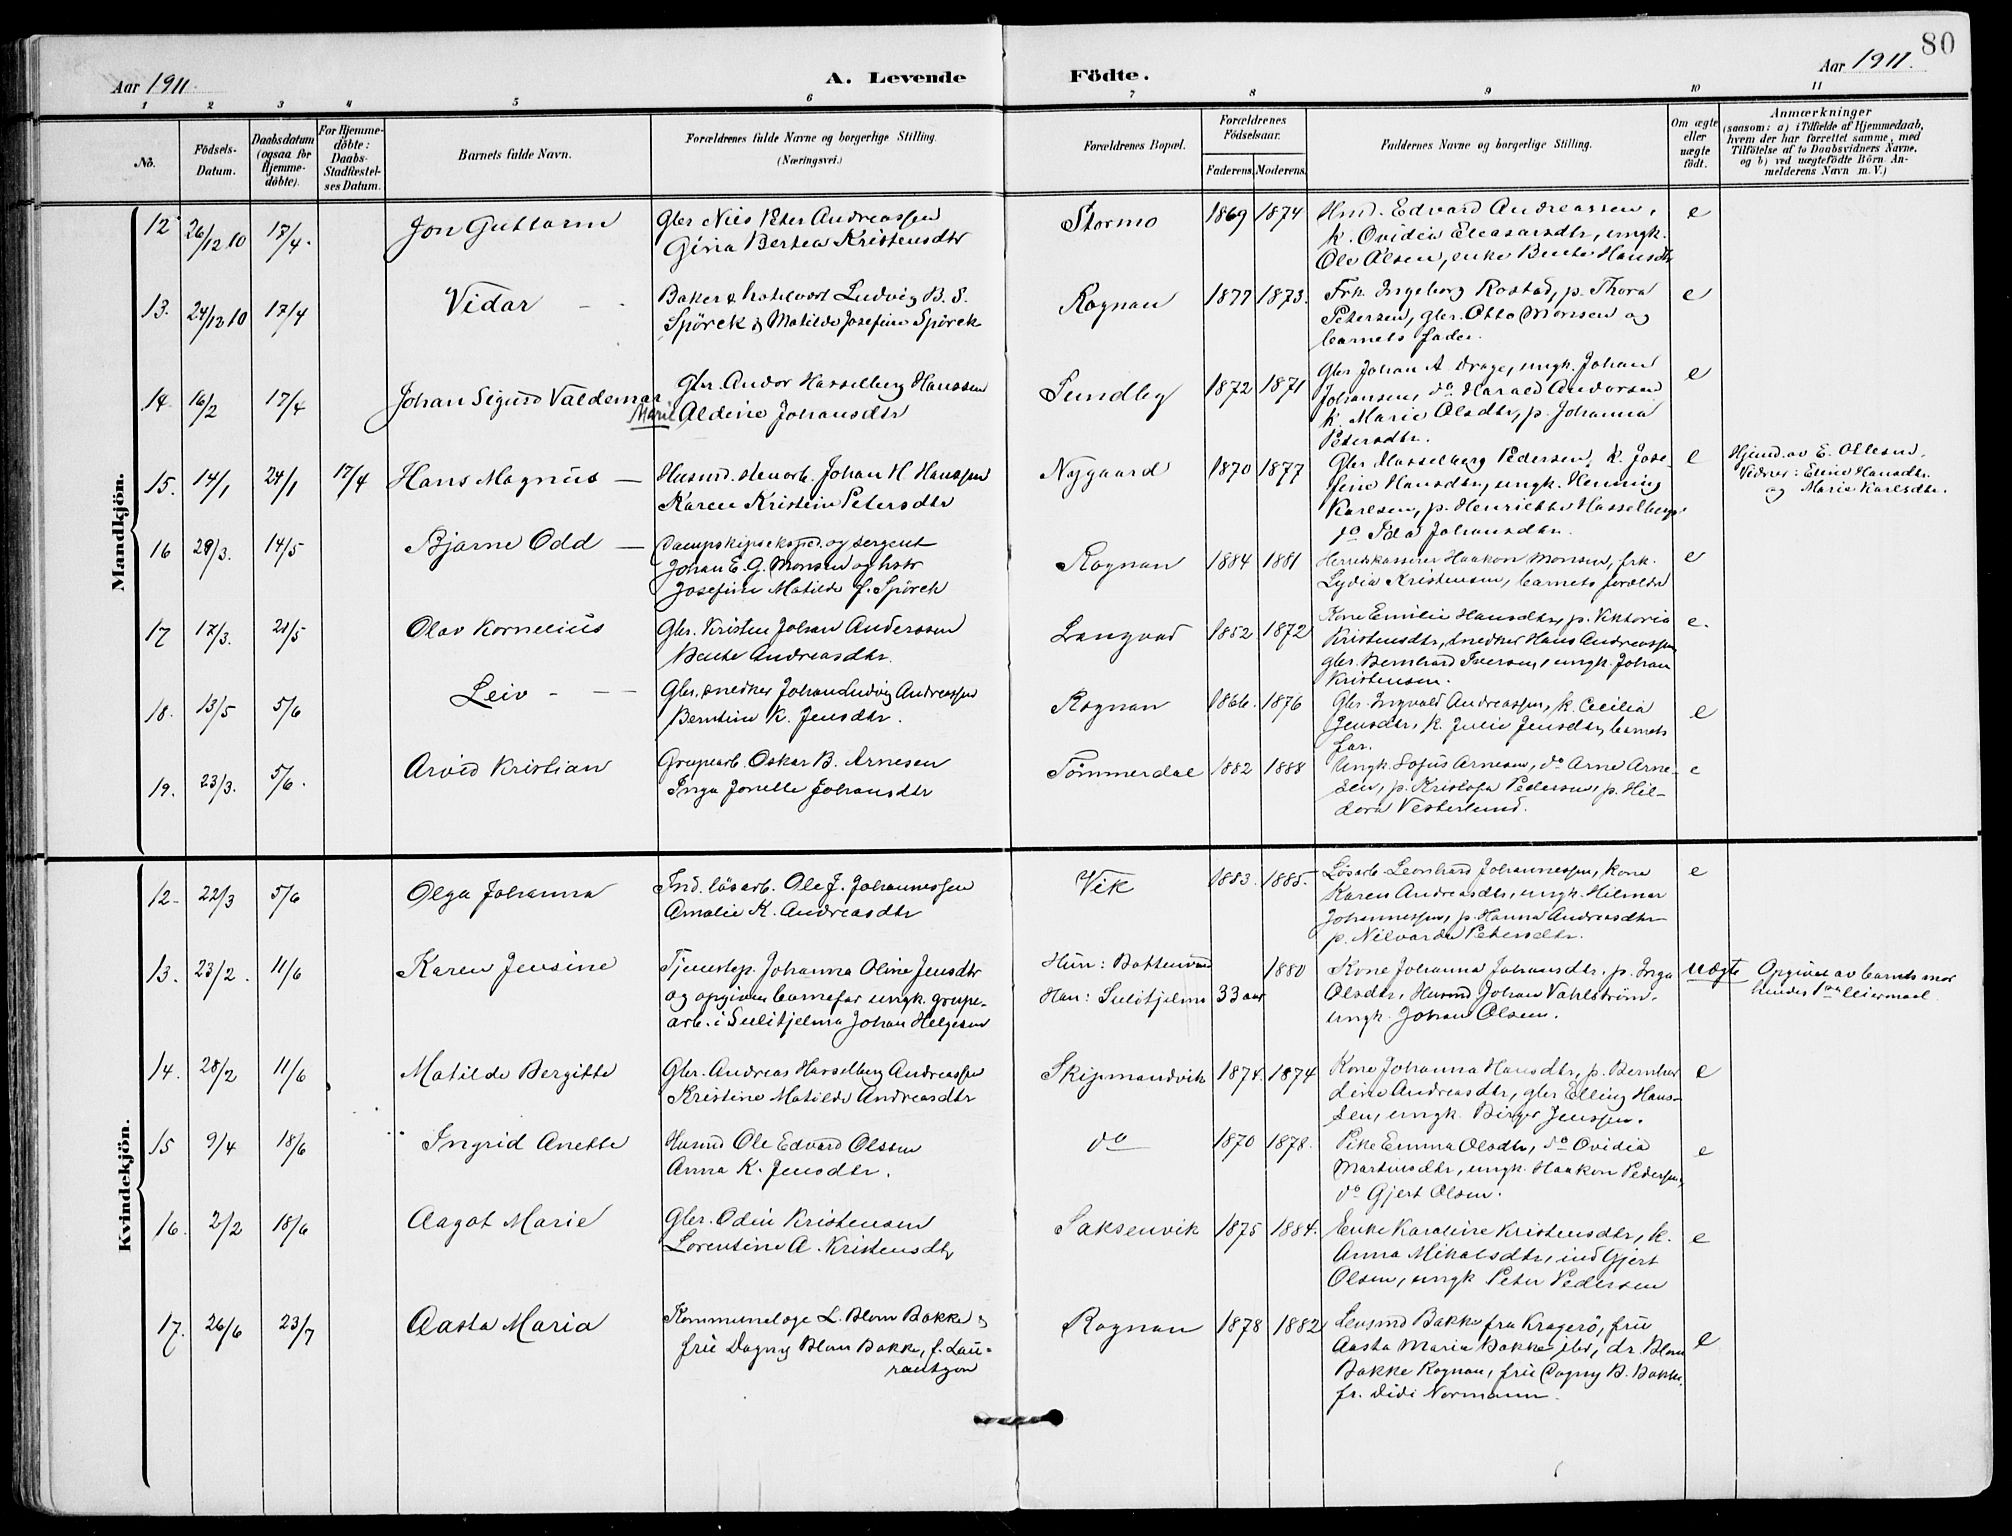 80
Aar 1911.
A. Levende Födte.
Aar 1911.
1 2 3 4 5 6 7 8 9 10 11
No.
Födsels-
Datum.
Daabsdatum
(ogsaa for
Hjemme-
döbte).
For Hjemme-
döbte:
Daabs-
Stadfæstel-
ses Datum.
Barnets fulde Navn.
Forældrenes fulde Navne og borgerlige Stilling.
(Næringsvei.)
Forældrenes Bopæl.
Forældrenes
Födselsaar.
Faderens. Moderens.
Faddernes Navne og borgerlige Stilling.
Om ægte
eller
uægte
födt.
Anmærkninger
(saasom: a) i Tilfælde af Hjemmedaab,
hvem der har forrettet samme, med
Tilföielse af to Daabsvidners Navne,
og b) ved uægtefödte Börn An-
melderens Navn m. V.)
Mandkjön.
12 26/12 10 17/4. Jon Guttorm
Gbr Nils Peter Andreassen
Gina Bertea Kristensdtr
Stormo 1869 1874
Hmd. Edvard Andreassen,
k. Ovidia Eleasarsdtr, ungk.
Ole Olsen, enke Bente Hansdtr
e
13. 24/12 10 17/4 Vidar
Baker & hotelvært Ludvig B. S.
Spörck & Matilde Josefine Spörck
Rognan 1877 1873.
Frk. Ingeborg Rostad, p. Thora
Petersen, gbr. Otto Monsen og
barnets fader.
e
14. 16/2 17/4 Johan Sigurd Valdemar
Gbr. Andor Hasselberg Hanssen
Marie Aldine Johansdtr
Sundby 1872 1871
Gbr Johan A. Drage, ungk. Johan
Johansen, do Harald Andorsen
k. Marie Olsdtr, p. Johanna
Petersdtr.
e
15. 14/1 24/1 17/4 Hans Magnus
Husmd. stenarb. Johan H. Hanssen
Karen Kristine Petersdtr
Nygaard 1870 1877
Gbr Hasselberg Pedersen, k. Jose-
fine Hansdtr, ungk. Henning
Karlsen, p. Henriette Hasselberg
do Ida Johansdtr.
e
Hjemd. av E. Ottesen.
Vidner: Eline Hansdtr.
og Marie Karlsdtr.
16 28/3. 14/5 Bjarne Odd
Dampskipseksped. og sergent
Johan E. G. Monsen og hstr
Josefine Matilde f. Spörck
Rognan 1884 1881
Herredskasserer Haakon Monsen, frk.
Lydia Kristensen, barnets foreldre
e
17 17/3. 21/5 Olav Kornelius
Gbr. Kristen Johan Anderssen
Bente Andreasdtr.
Langvad 1852 1872
Kone Emilie Hansdtr, p. Viktoria
Kristensdtr, snedker Hans Andreassen,
gbr. Bernhard Iversen, ungk. Johan
Kristensen.
e.
18. 13/5 5/6 Leiv
Gbr. snedker Johan Ludvig Andreassen
Berntine K. Jensdtr.
Rognan 1866. 1876
Gbr. Ingvald Andreassen, k. Cecilia
Jensdtr, k. Julie Jensdtr, barnets
far.
e
19. 23/3. 5/6. Arvid Kristian
Grubearb. Oskar B. Arnesen
Inga Jonette Johansdtr
Tömmerdal 1882 1888
Ungk. Sofus Arnesen, do Arne Arne-
sen, p. Kristofa Pedersen, p. Hil-
dora Vesterlund.
e
Kvindekjön.
12. 22/3 5/6 Olga Johanna
Ind. lösarb. Ole J. Johannessen
Amalie K. Andreasdtr
Vik 1883. 1885.
Lösarb Leonhard Johannessen, kone
Karen Andreasdtr, ungk. Hilmar
Johannessen, p. Hanna Andreasdtr
p. Nilvarda Petersdtr.
e
13. 23/2. 11/6 Karen Jensine
Tjenestep. Johanna Oline Jensdtr
og opgiven barnefar ungk. grube-
arb. i Sulitjelma Johan Helgesen
Hun: Bottenvand
Han: Sulitjelma 33 aar 1880
Kone Johanna Johansdtr. p. Inga
Olsdtr, Husmd Johan Vahlström.
ungk. Johan Olsen.
uægte
Opgivet av barnets mor
hendes 1ste leiermaal.
14. 28/2 11/6 Matilde Bergitte
Gbr. Andreas Hasselberg Andreassen
Kristine Matilde Andreasdtr
Skipmandvik 1874. 1874
Kone Johanna Hansdtr, p. Bernhar
dine Andreasdtr, gbr Elling Hans-
sen, ungk. Birger Jenssen.
e
15 9/4 18/6 Ingrid Anette
Husmd Ole Edvard Olssen
Anna K. Jensdtr.
do 1870 1878.
Pike Emma Olsdtr, do Ovidia
Martinsdtr, ungk. Haakon Pedersen,
do Gjert Olsen.
e
16. 2/2 18/6 Aagot Marie
Gbr. Odin Kristensen
Lorentine A. Kristensdtr
Saksenvik 1875 1884.
Enke Karoline Kristensdtr, k.
Anna Mikalsdtr, ind Gjert
Olsen, ungk Peter Pedersen
e
17. 26/6 23/7 Aasta Maria
Kommunelæge L. Blom Bakke &
frü Dagny Blom Bakke, f. Lau-
rantzon
Rognan 1878 1882
Lensmd Bakke fra Kragerö, frü
Aasta Maria Bakke ibd, dr. Blom
Bakke Rognan, frü Dagny B. Bakke,
fr. Didi Normann.
e